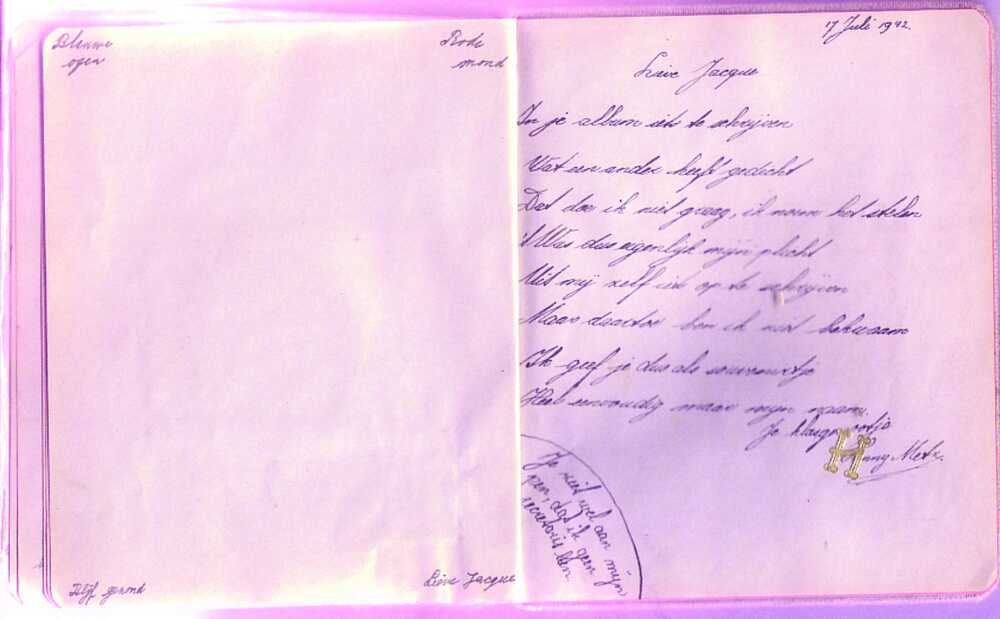 Blauwe
ogen
Rode
mond
Blijf gezond
Lieve Jacque
17 Juli 1942.
Lieve Jacque
In je album iets te schrijven
Wat een ander heeft gedicht
Dat doe ik niet graag, ik noem het stelen
't Was dus eigenlijk mijn plicht
Uit mij zelf iets op te schrijven
Maar daartoe ben ik niet bekwaam
Ik geef je dus als souvenirtje
Heel eenvoudig maar mijn naam.
Je klasgenootje
Metz.
Je ziet wel aan mijn
pen, dat ik geen
secretaris ben.